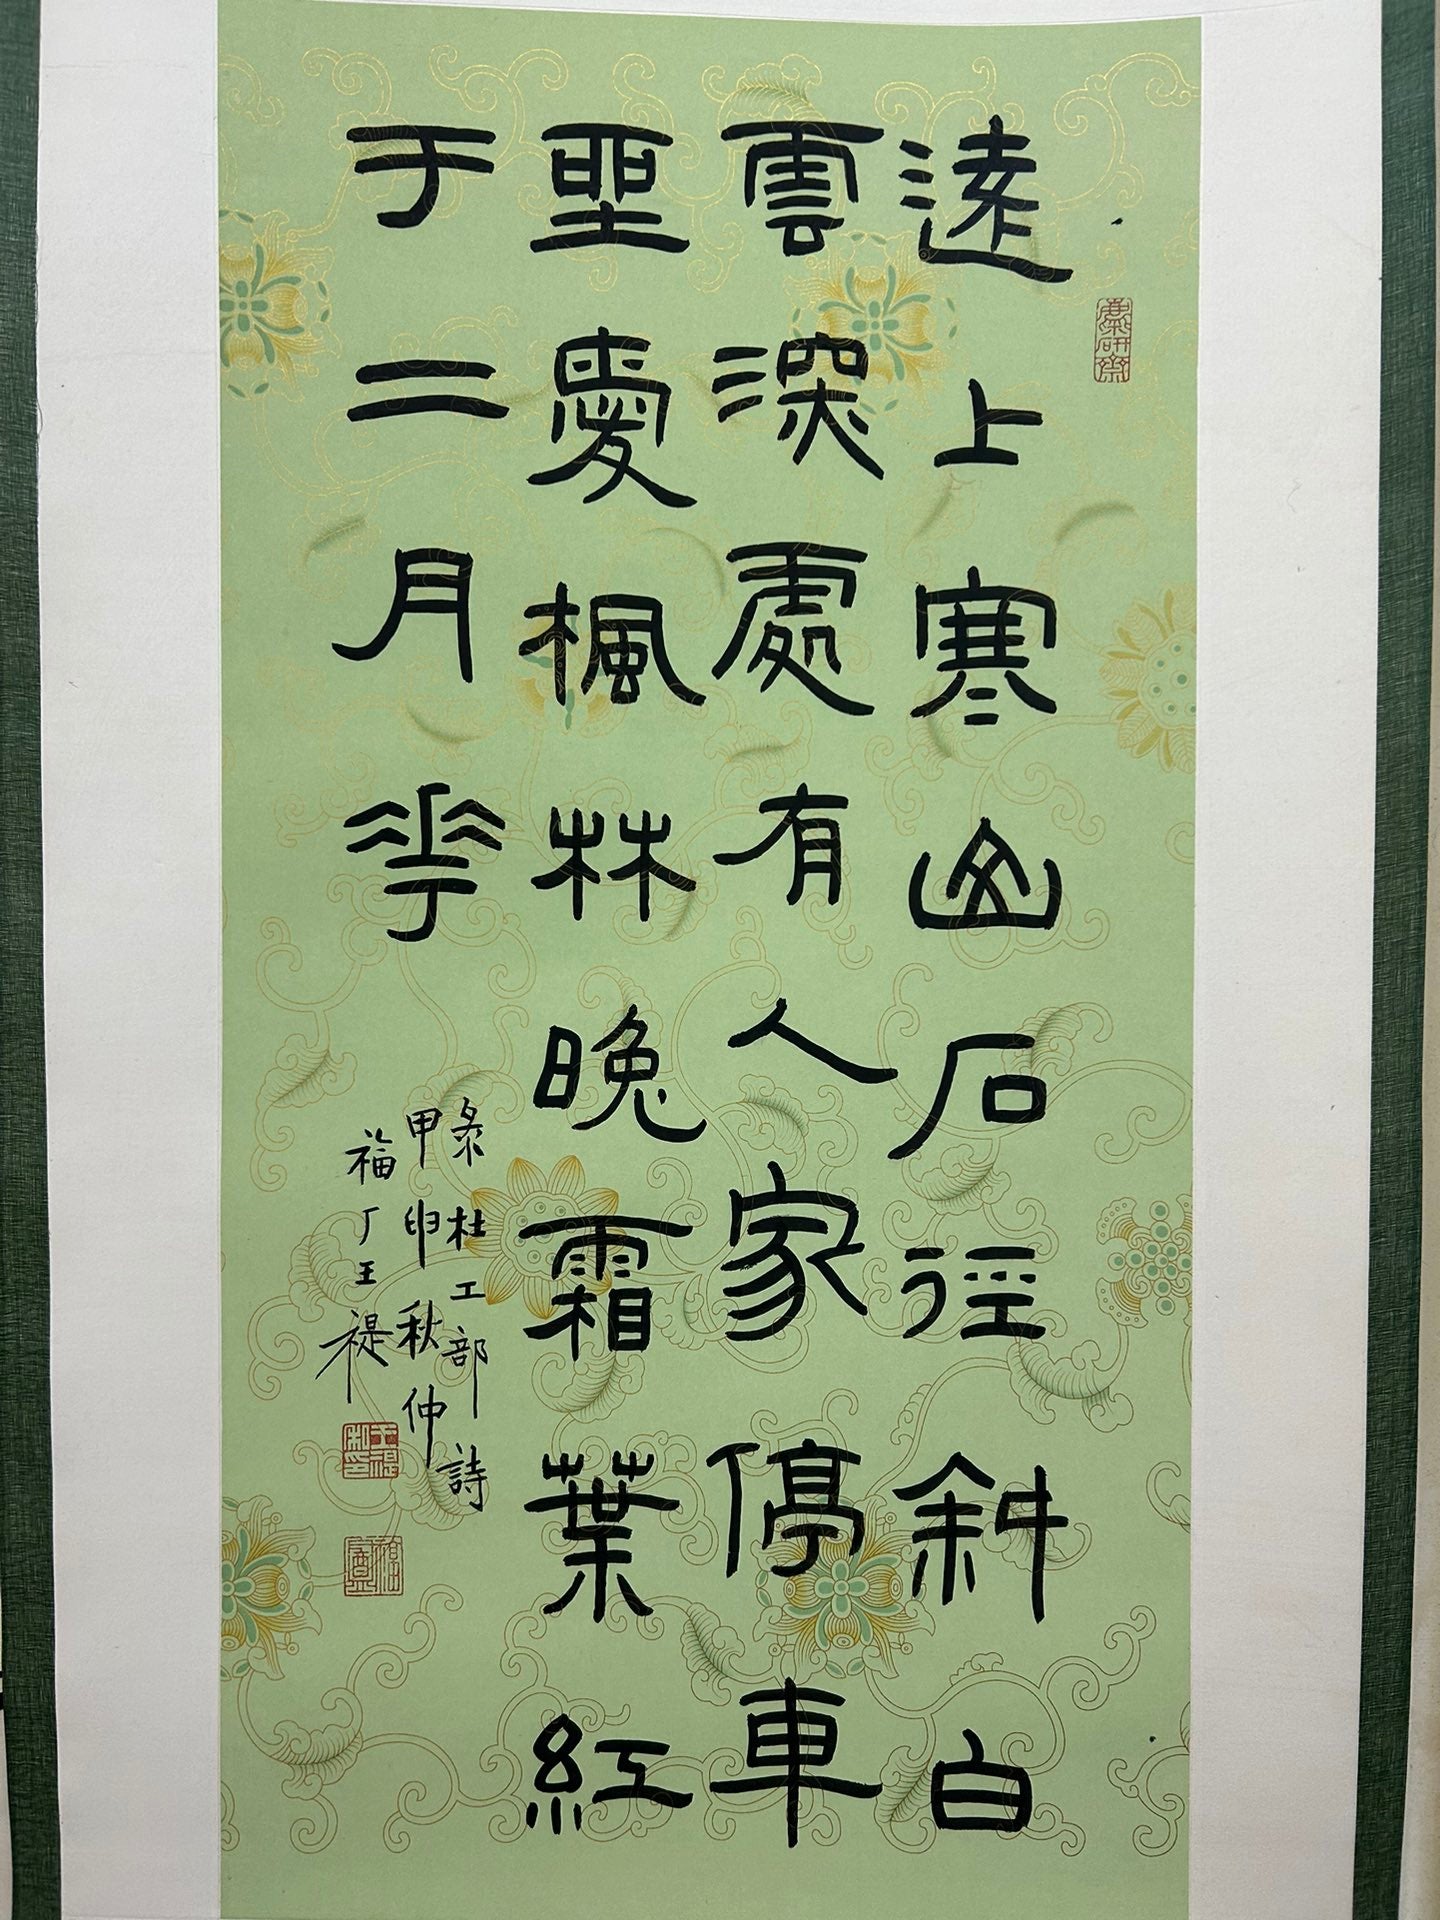 麋研齋
遠上寒山石徑斜白
雲深處有人家停車
坐愛楓林晚霜葉紅
于二月花
彔杜工部詩
甲申秋仲
福厂王禔
王禔私印
福盦